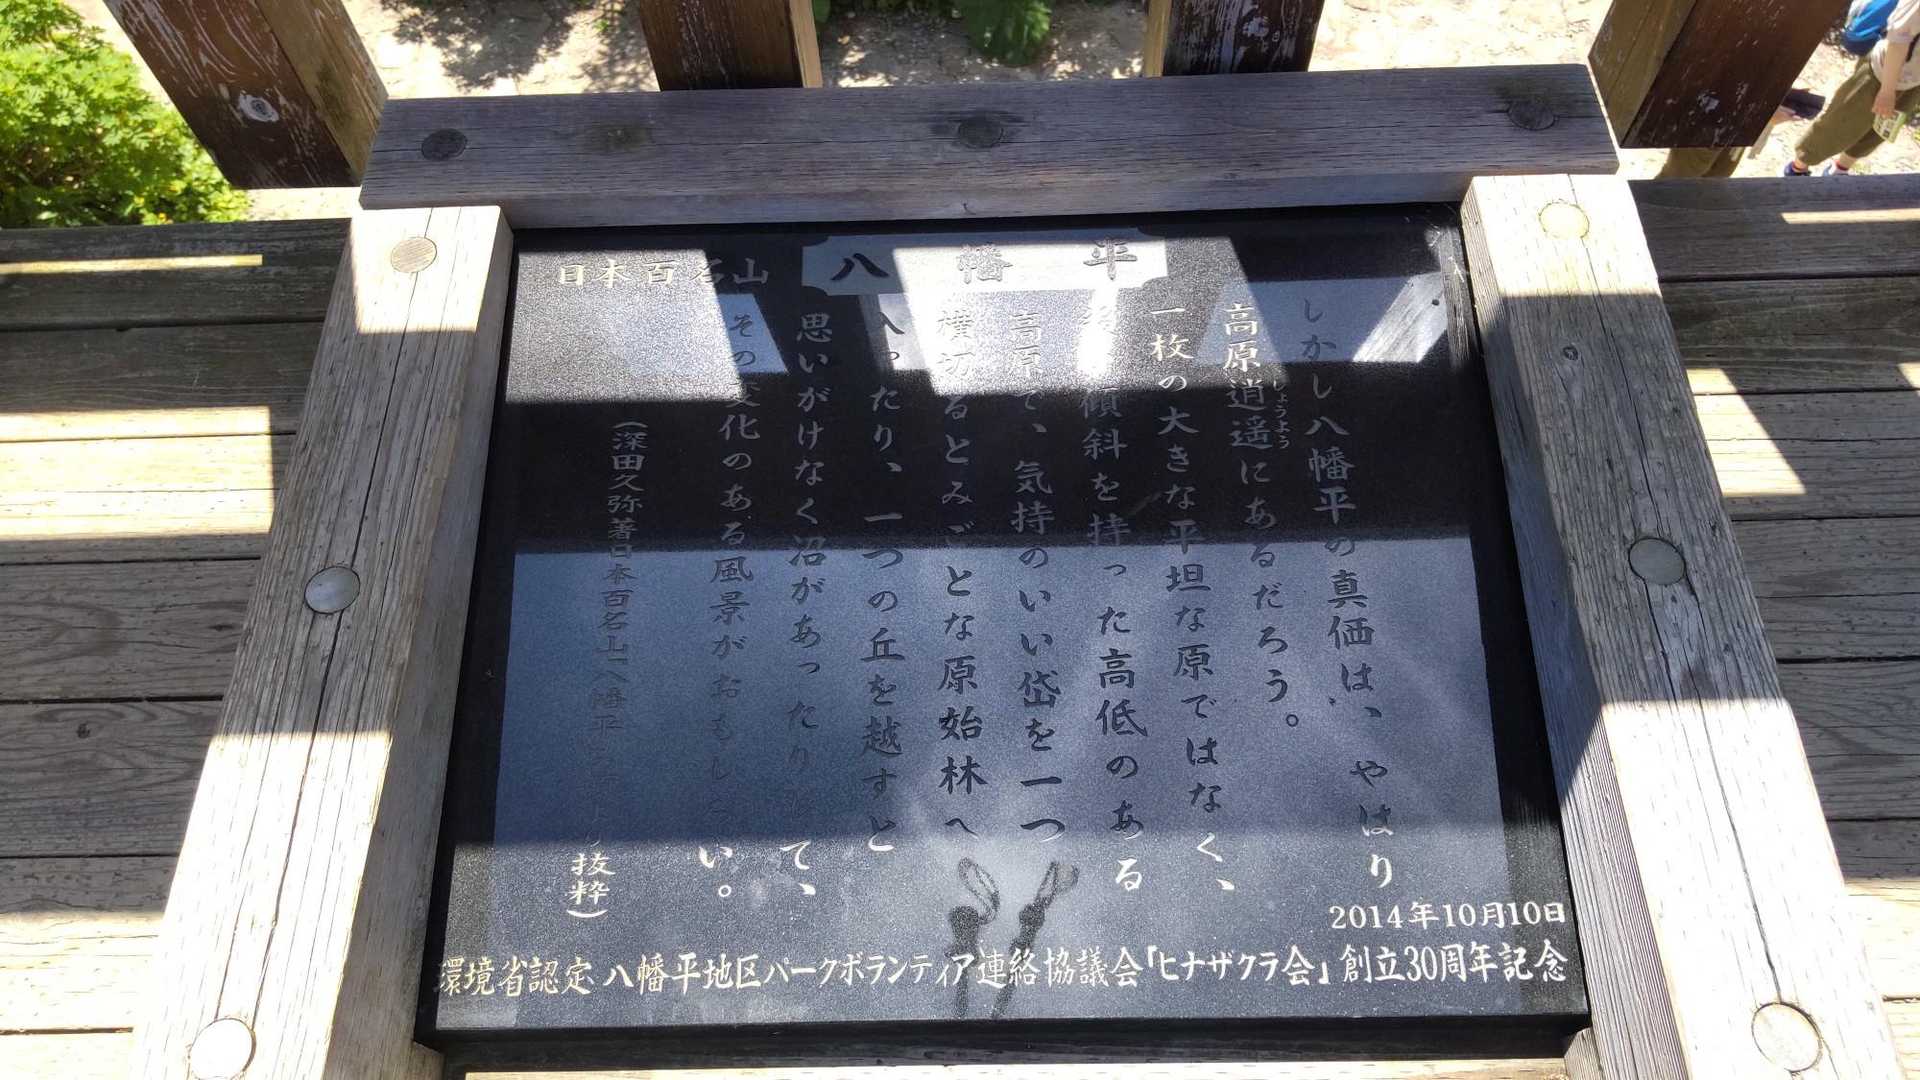 日本百名山 八幡平
しかし八幡平の真価は、やはり
高原逍遥にあるだろう。
しょうよう
一枚の大きな平坦な原ではなく、
傾斜を持った高低のある
高原で、気持のいい岱を一つ
横切るとみごとな原始林へ
入ったり、一つの丘を越すと
思いがけなく沼があったりして、
その変化のある風景がおもしろい。
(深田久弥著日本百名山「八幡平」より抜粋)
2014年10月10日
環境省認定 八幡平地区パークボランティア連絡協議会「ヒナザクラ会」創立30周年記念